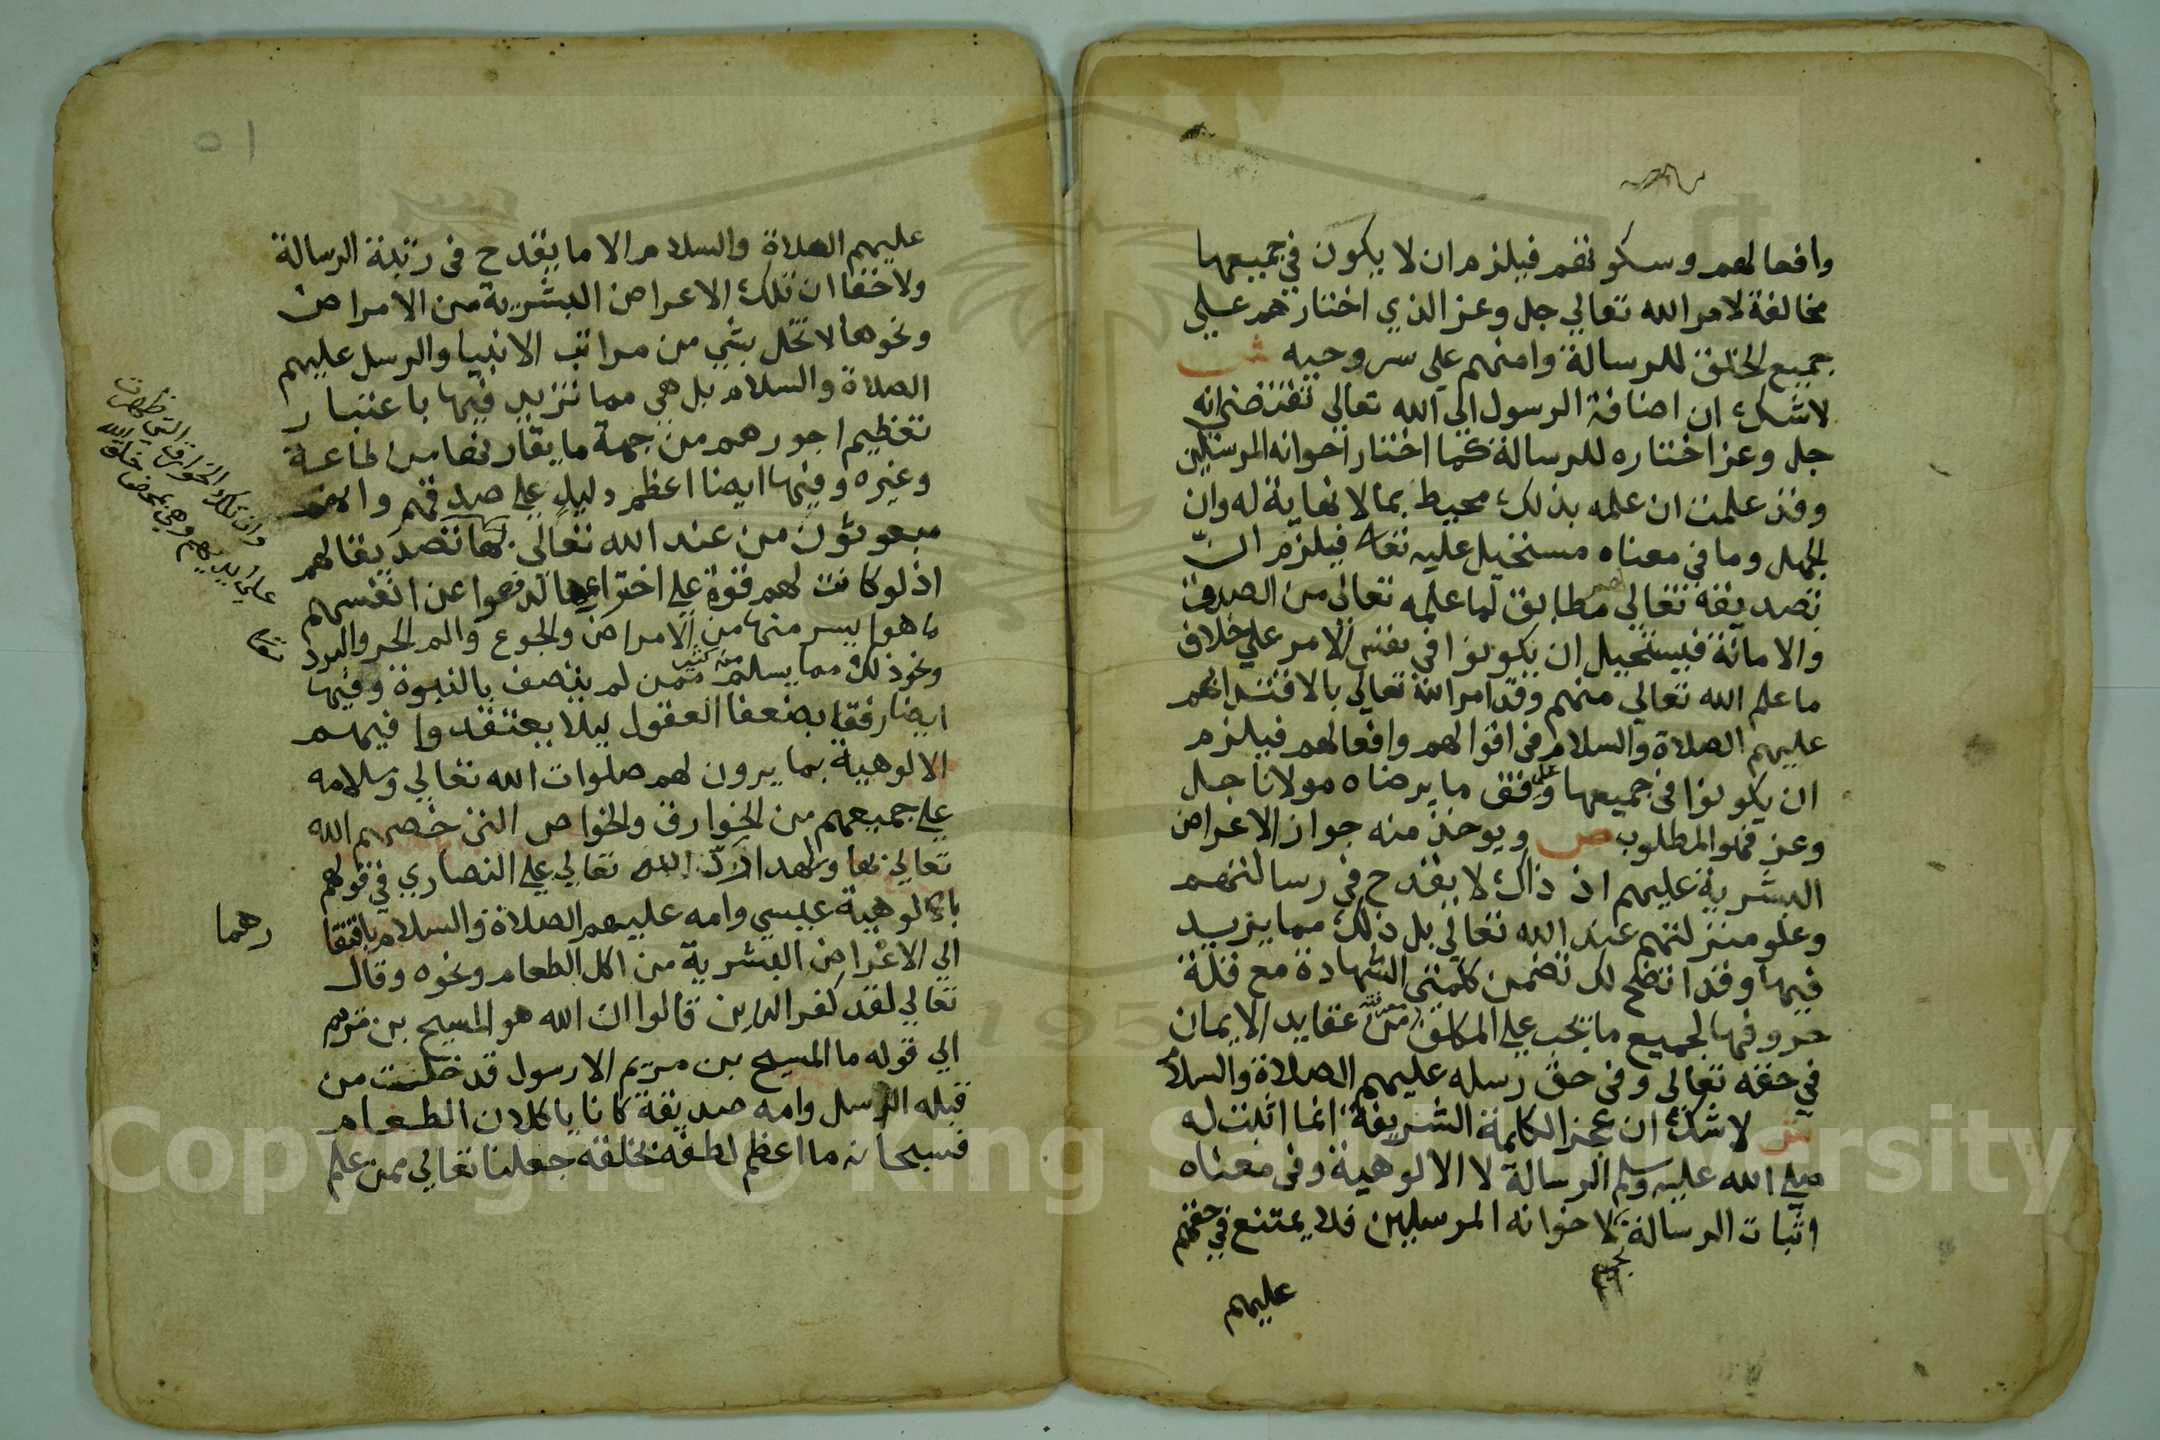 وافعالهم وسكوتهم فيلزم ان لا يكون في جميعها
مخالفة لامر الله تعالي جل وعز الذي اختارهم علي
جميع الخلق للرسالة وامنهم علي سر وحيه ش
لا شك ان اضافة الرسول الي الله تعالي تقتضي انه
جل وعز اختاره للرسالة كما اختار اخوانه المرسلين
وقد علمت ان علمه بذلك محيط بما لا نهاية له وان
الجهل وما في معناه مستحيل عليه تعالى فيلزم ان
تصديقه تعالي مطابق لما علمه تعالي من الصدق
والامانة فيستحيل ان يكونوا في نفس الامر علي خلاف
ما علم الله تعالي منهم وقد امر الله تعالي بالاقتدا بهم
عليهم الصلاة والسلام في اقوالهم وافعالهم فيلزم
ان يكونوا في جميعها علي وفق ما يرضاه مولانا جل
وعز فهو المطلوب ص ويوخذ منه جواز الاعراض
البشرية عليهم اذ ذاك لا يقدح في رسالتهم
وعلو منزلتهم عند الله تعالي بل ذلك مما يزيد
فيها وقد اتضح لك تضمن كلمتي الشهادة مع قلة
حروفها لجميع ما يجب علي المكلف من عقايد الايمان
في حقه تعالى وفي حق رسله عليهم الصلاة والسلام
ش لا شك ان عجز الكلمة الشريفة انما اثبت له
صلي الله عليه وسلم الرسالة لا الالوهية وفي معناه
اثبات الرسالة لاخوانه المرسلين فلا يمتنع في حقهم
عليهم
٥١
عليهم الصلاة والسلام الا ما يقدح في رتبة الرسالة
ولا خفا ان تلك الاعراض البشرية من الامراض
ونحوها لا تخل بشي من مراتب الانبيا والرسل عليهم
الصلاة والسلام بل هي مما تزيد فيها باعتبار
تعظيم اجورهم من جهة ما يقارنها من طاعة
وغيره وفيها ايضا اعظم دليل علي صدقهم وانهم
مبعوثون من عند الله تعالي بها تصديقا لهم
وان تلك الخوارق التي ظهرت
علي ايديهم هي بمحض خلق الله
تعالي
اذ لو كانت لهم قوة علي اختراعها لدفعوا عن انفسهم
ما هو ايسر منها من الامراض والجوع والم الحر والبرد
ونحو ذلك مما يسلم منه كثير ممن لم يتصف بالنبوة وفيها
ايضا رفقا بضعفا العقول ليلا يعتقدوا فيهم
الالوهية بما يرون لهم صلوات الله تعالي وسلامه
علي جميعهم من الخوارق والخواص التي خصهم الله
تعالي بها ولهذا رد الله تعالي علي النصاري في قولهم
بالوهية عيسي وامه عليهم الصلاة والسلام بافتقا
رهما
الي الاعراض البشرية من اكل الطعام ونحوه وقال
تعالي لقد كفر الذين قالوا ان الله هو المسيح بن مريم
الي قوله ما المسيح بن مريم الا رسول قد خلت من
قبله الرسل وامه صديقة كانا ياكلان الطعام
فسبحانه ما اعظم لطفه بخلقه جعلنا تعالي ممن علم
Copyright © King Saud University
195